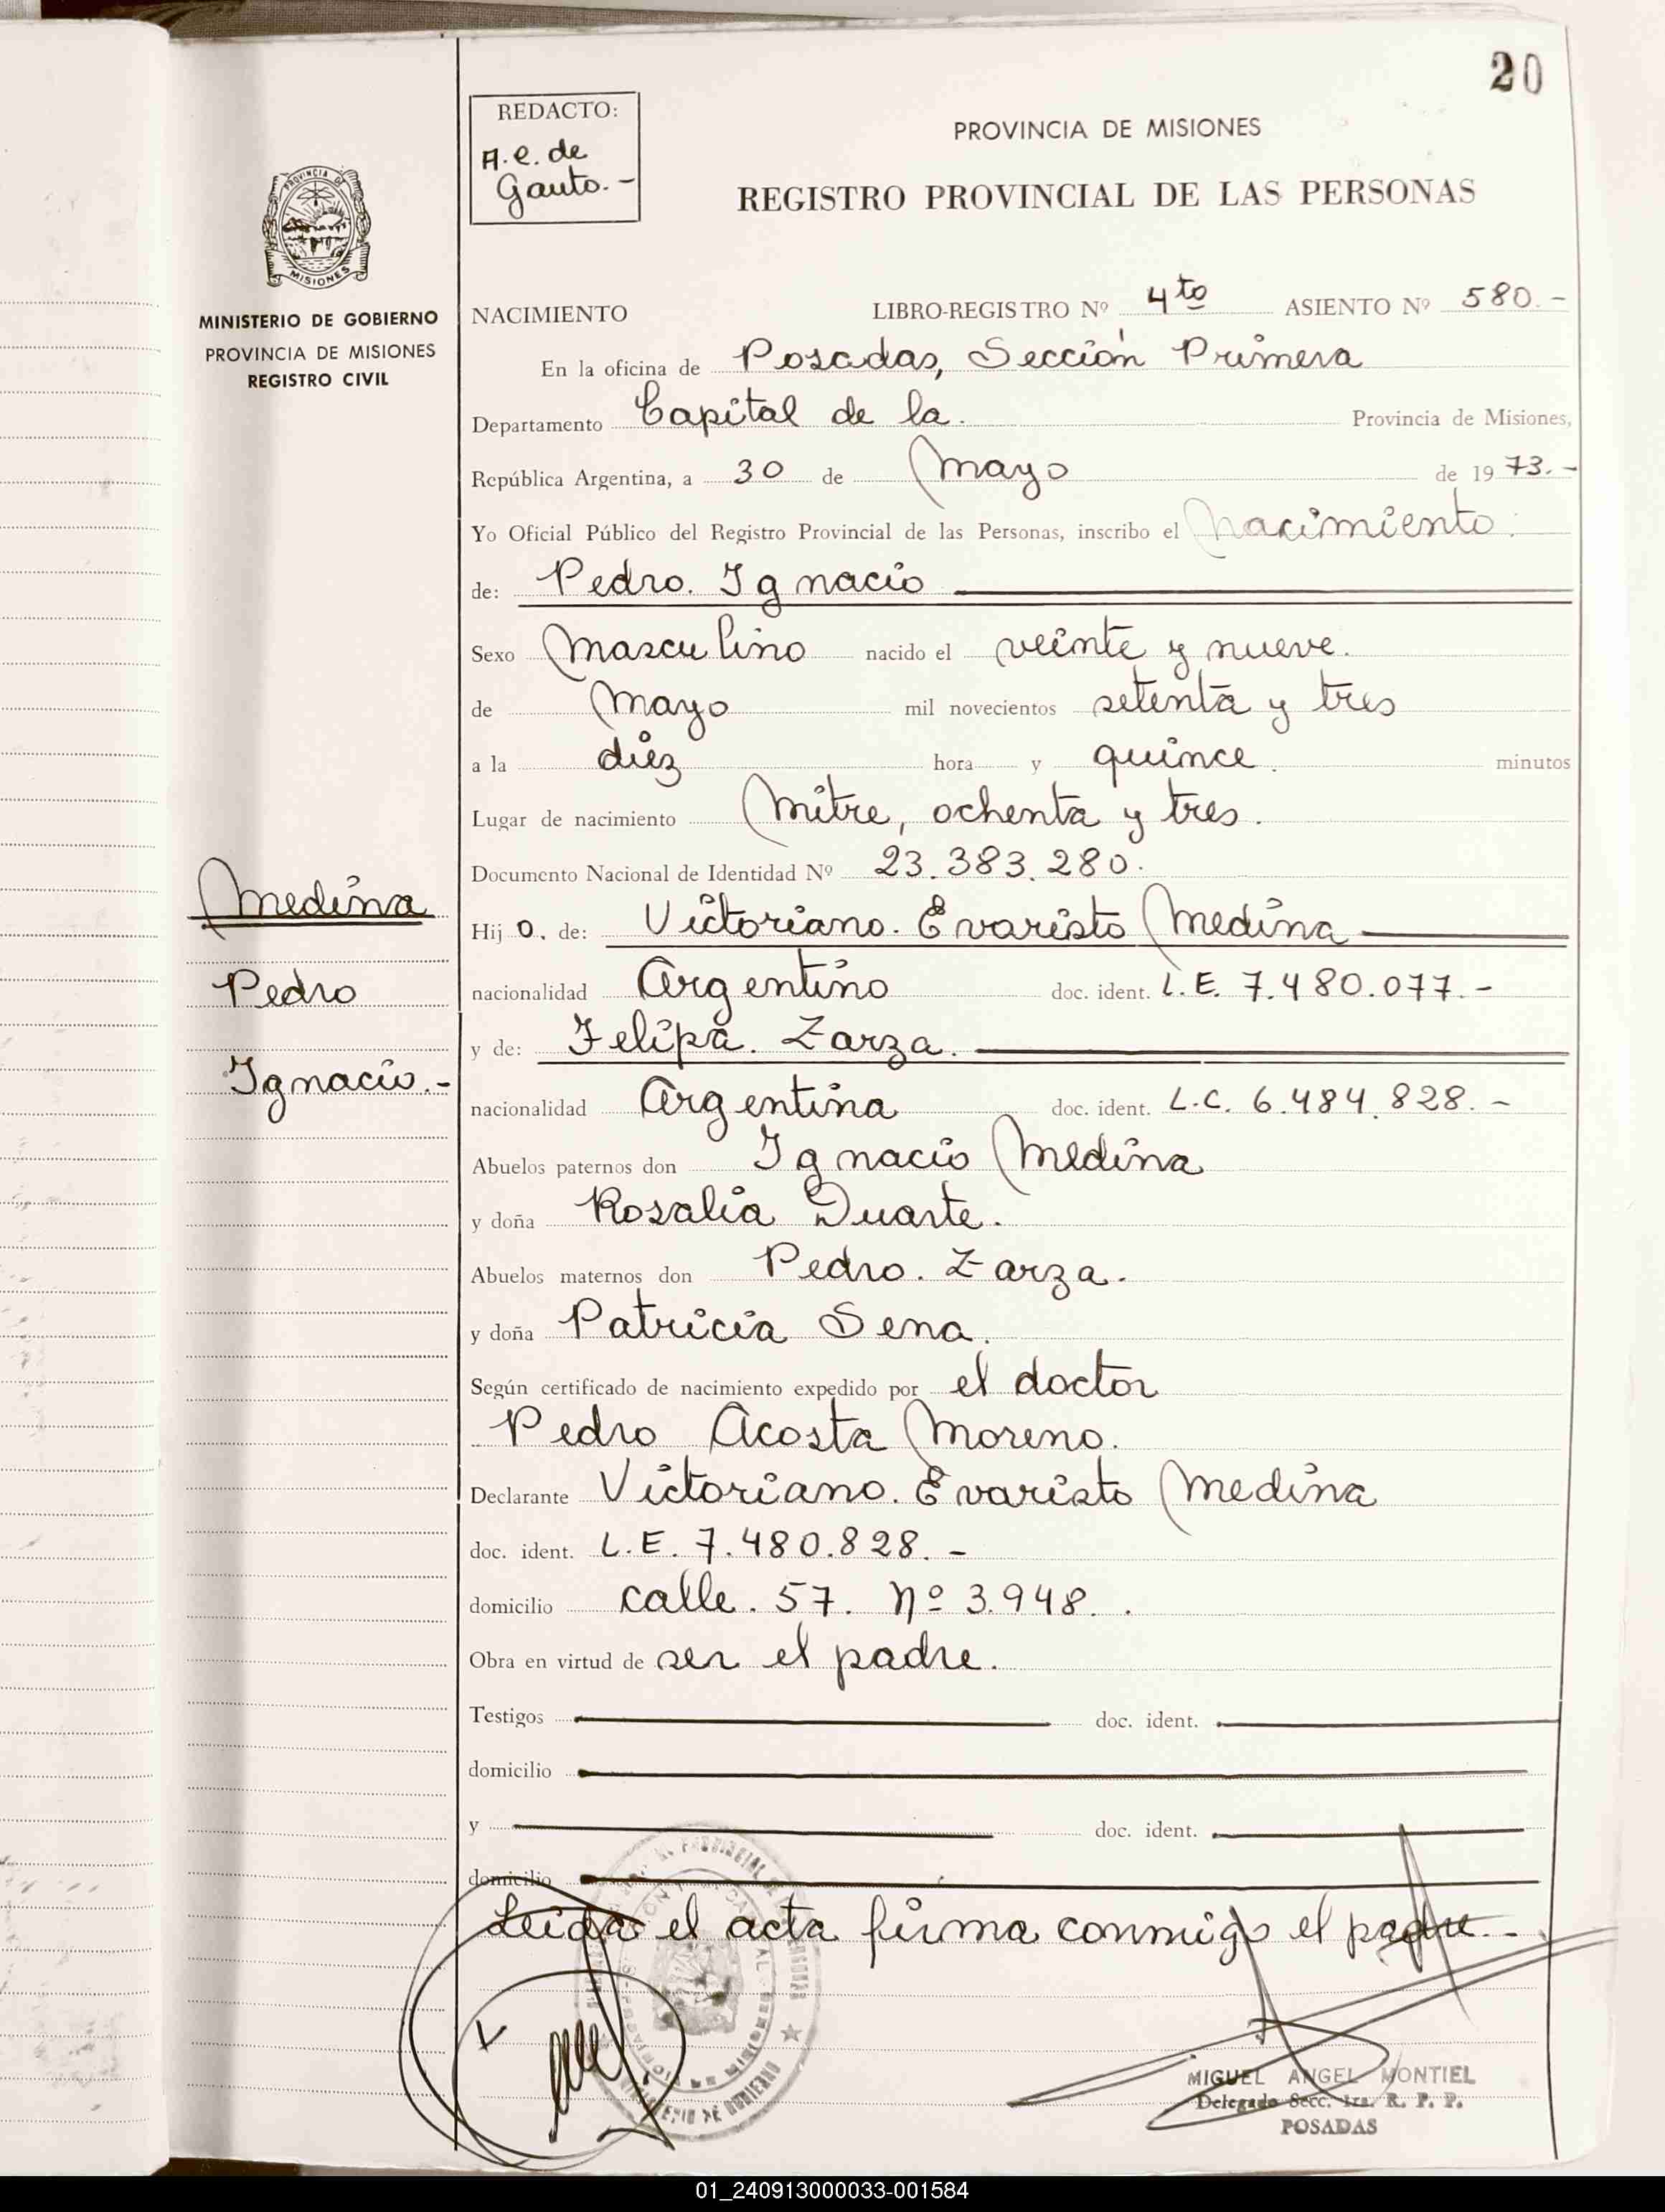 20
REDACTO:
A.e. de
Gauto.-
PROVINCIA DE MISIONES
REGISTRO PROVINCIAL DE LAS PERSONAS
PROVINCIA DE
MISIONES
MINISTERIO DE GOBIERNO
PROVINCIA DE MISIONES
REGISTRO CIVIL
NACIMIENTO LIBRO-REGISTRO Nº 4to ASIENTO Nº 580.-
En la oficina de Posadas, Sección Primera
Departamento Capital de la. Provincia de Misiones,
República Argentina, a 30 de Mayo de 1973.-
Yo Oficial Público del Registro Provincial de las Personas, inscribo el Nacimiento.
de: Pedro. Ignacio
Sexo Masculino nacido el veinte y nueve.
de Mayo mil novecientos setenta y tres
a la diez hora y quince. minutos
Lugar de nacimiento Mitre, ochenta y tres.
Documento Nacional de Identidad Nº 23.383.280.
Medina
Hijo. de: Victoriano. Evaristo Medina
Pedro
nacionalidad Argentino doc. ident. L.E. 7.480.077.-
y de: Felipa. Zarza.
Ignacio.-
nacionalidad Argentina doc. ident. L.C. 6.484.828.-
Abuelos paternos don Ignacio Medina
y doña Rosalia Duarte.
Abuelos maternos don Pedro. Zarza.
y doña Patricia Sena.
Según certificado de nacimiento expedido por el doctor
Pedro Acosta Moreno.
Declarante Victoriano. Evaristo Medina
doc. ident. L.E. 7.480.828.-
domicilio calle. 57. Nº 3.948..
Obra en virtud de ser el padre.
Testigos doc. ident.
domicilio
y doc. ident.
domicilio
Leida el acta firma conmigo el padre.-
MIGUEL ANGEL MONTIEL
Delegado Secc. 1ra. R. P. P.
POSADAS
01_240913000033-001584